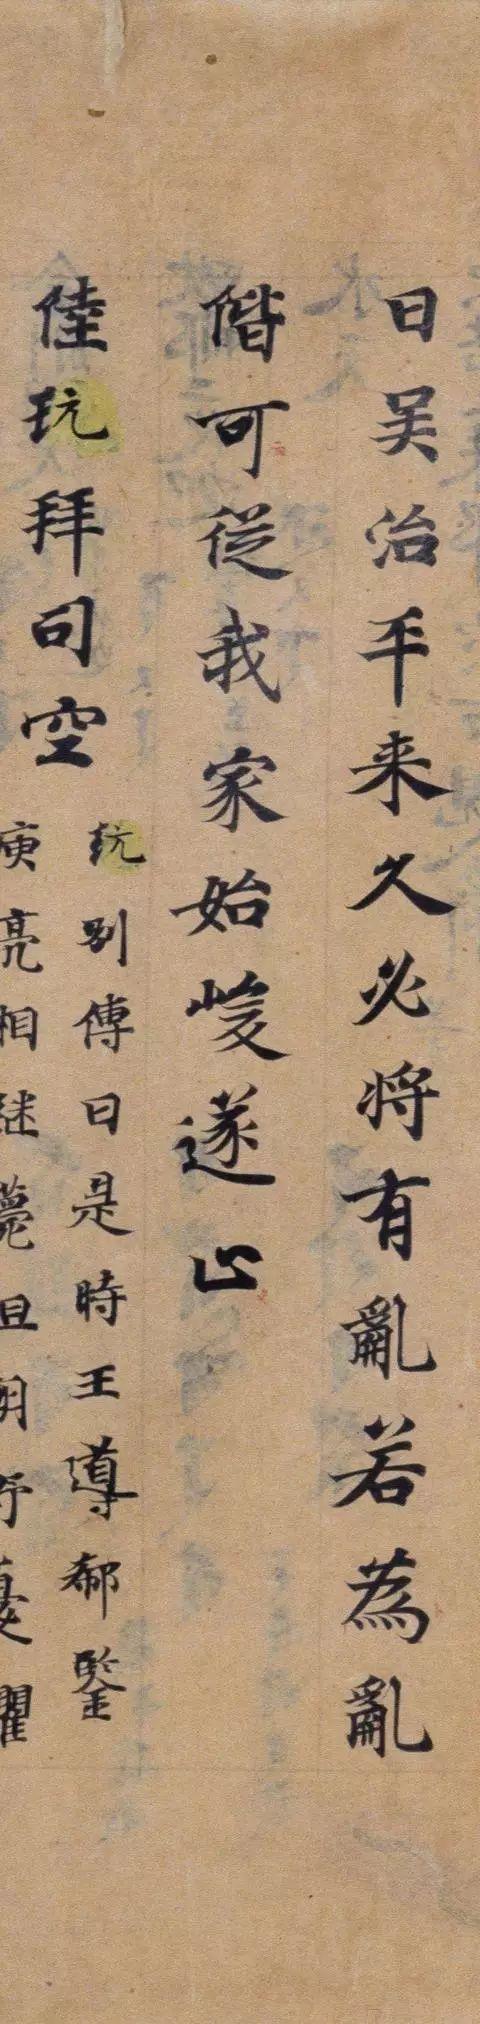 曰吴治平来久必将有亂若為亂
階可従我家始峻遂止
陸玩拜司空
玩別傳曰是時王導郗鑒
庾亮相継薨殂朝野憂懼